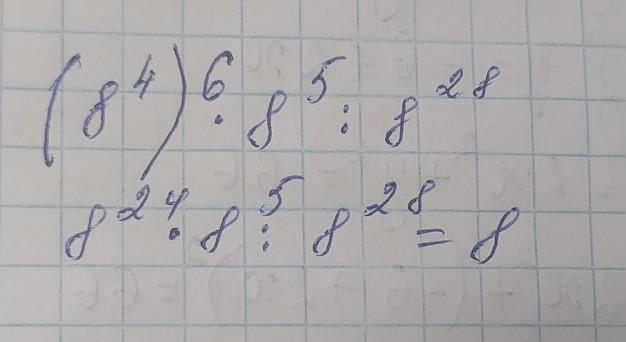 (8⁴)⁶ · 8⁵ : 8²⁸
8²⁴ · 8⁵ : 8²⁸ = 8